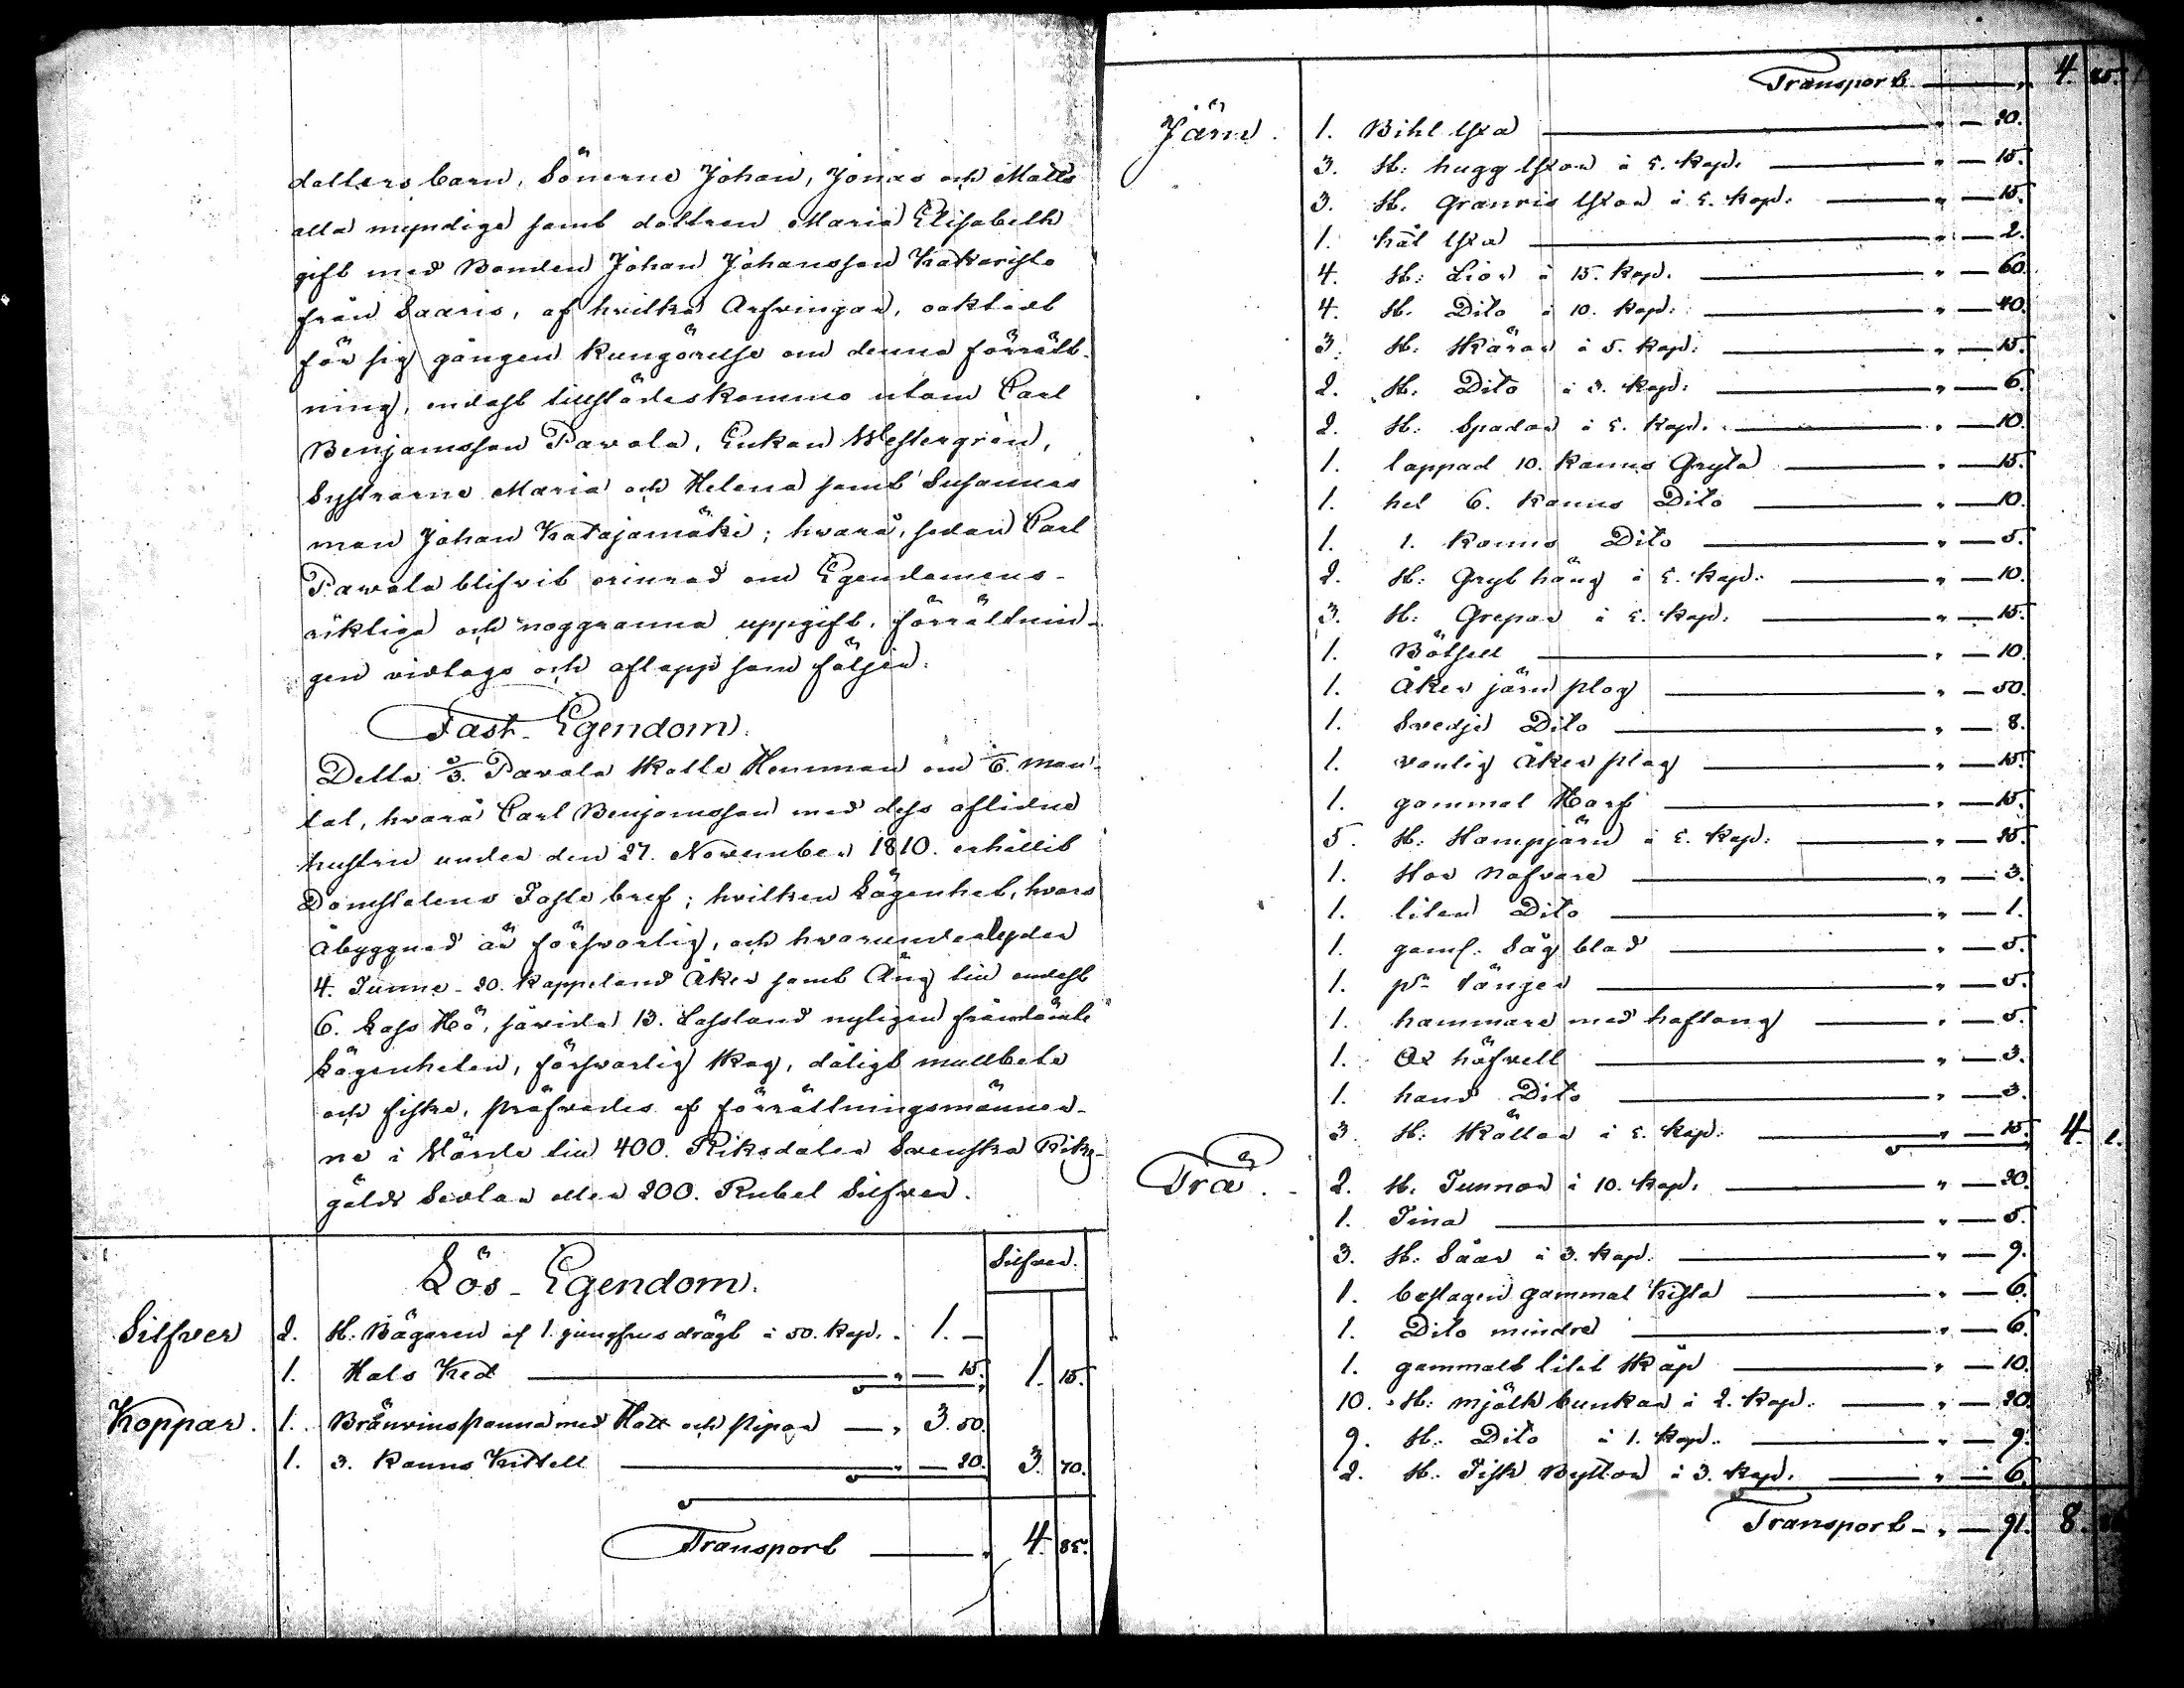 dotters barn, Sönerne Johan, Jonas och Matts
alla myndige samt dottren Maria Elisabeth
gift med Bonden Johan Johansson Kakaristo
från Saaris, af hvilka Arfvingar, oaktadt
för sig gången kungörelse om denna förrätt-
ning, endast tillstädeskommo utom Carl
Benjamsson Pavola, Enkan Westergrén,
Systrarne Maria och Helena samt Susannas
man Johan Katajamäki; hvarå, sedan Carl
Pavola blifvit erinrad om Egendomens
riktiga och noggranna uppgift, förrättnin-
gen vidtogs och aflopp som följer:
Fast Egendom.
Detta 2/3. Pavola Skatte Hemman om 1/6. man-
tal, hvarå Carl Benjamsson med dess aflidne
hustru under den 27. November 1810. erhållit
Domstolens Faste bref; hvilken Lägenhet, hvars
åbyggnad är försvarlig, och hvarunder lyder
4. Tunne 20. kappeland Åker samt Äng till endast
6. Lass Hö, såvida 13. Lassland nyligen fråndömts
Lägenheten, försvarlig skog, dåligt mullbete
och fiske, pröfvades af förrättningsmänner-
ne i Värde till 400. Riksdaler Svenska Riks-
gälds Sedlar eller 200. Rubel Silfver.
Lös Egendom.
Silfver.
Silfver 2. St: Bägaren af 1. jungfrus drägt á 50. kop. 1. —
1. Hals Ked " — 15. 1. 15.
Koppar. 1. Bränvinspanna med Hatt och pipor — " 3. 50.
1. 3. kanns Kittell " — 20. 3. 70.
Transport " 4. 85.
Transport " 4. 85.
Järn. 1. Bihl Yxa " — 20.
3. St: hugg Yxor á 5. kop. " — 15.
3. St. Granris Yxor á 5. kop. " — 15.
1. hål Yxa " — 2.
4. St: Liar á 15. kop. " — 60.
4. St. Dito á 10. kop: " — 40.
3. St: Skäror á 5. kop: " — 15.
2. St. Dito á 3. kop: " — 6.
2. St: Spadar á 5. kop. " — 10.
1. lappad 10. kanns Gryta " — 15.
1. hel 6. kanns Dito " — 10.
1. 1. kanns Dito " — 5.
2. St: Gryt häng á 5. kop: " — 10.
3. St: Grepar á 5. kop. " — 15.
1. " — 10.
1. Åker järn plog " — 50.
1. Svedje Dito " — 8.
1. vanlig Åker plog " — 15.
1. gammal Harf " — 15.
5. St: Hampjärn á 5. kop: " — 25.
1. Stor Nafvare " — 3.
1. liten Dito " — 1.
1. gaml. Såg blad " — 5.
1. pr tänger " — 5.
1. hammare med hoftång " — 5.
1. Ox höfvell " — 3.
1. hand Dito " — 3.
3. St: Skällor á 5. kop: " — 15. 4. 1.
Trä. 2. St. Tunnor á 10. kop. " — 20.
1. Tina " — 5.
3. St: Såar á 3. kop. " — 9.
1. beslagen gammal Kista " — 6.
1. Dito mindre " — 6.
1. gammalt litet Skåp " — 10.
10. St: mjölk bunkar á 2. kop. " — 20.
9. St: Dito á 1. kop. " — 9.
2. St. Fisk Byttor á 3. kop. " — 6.
Transport " — 91. 8.